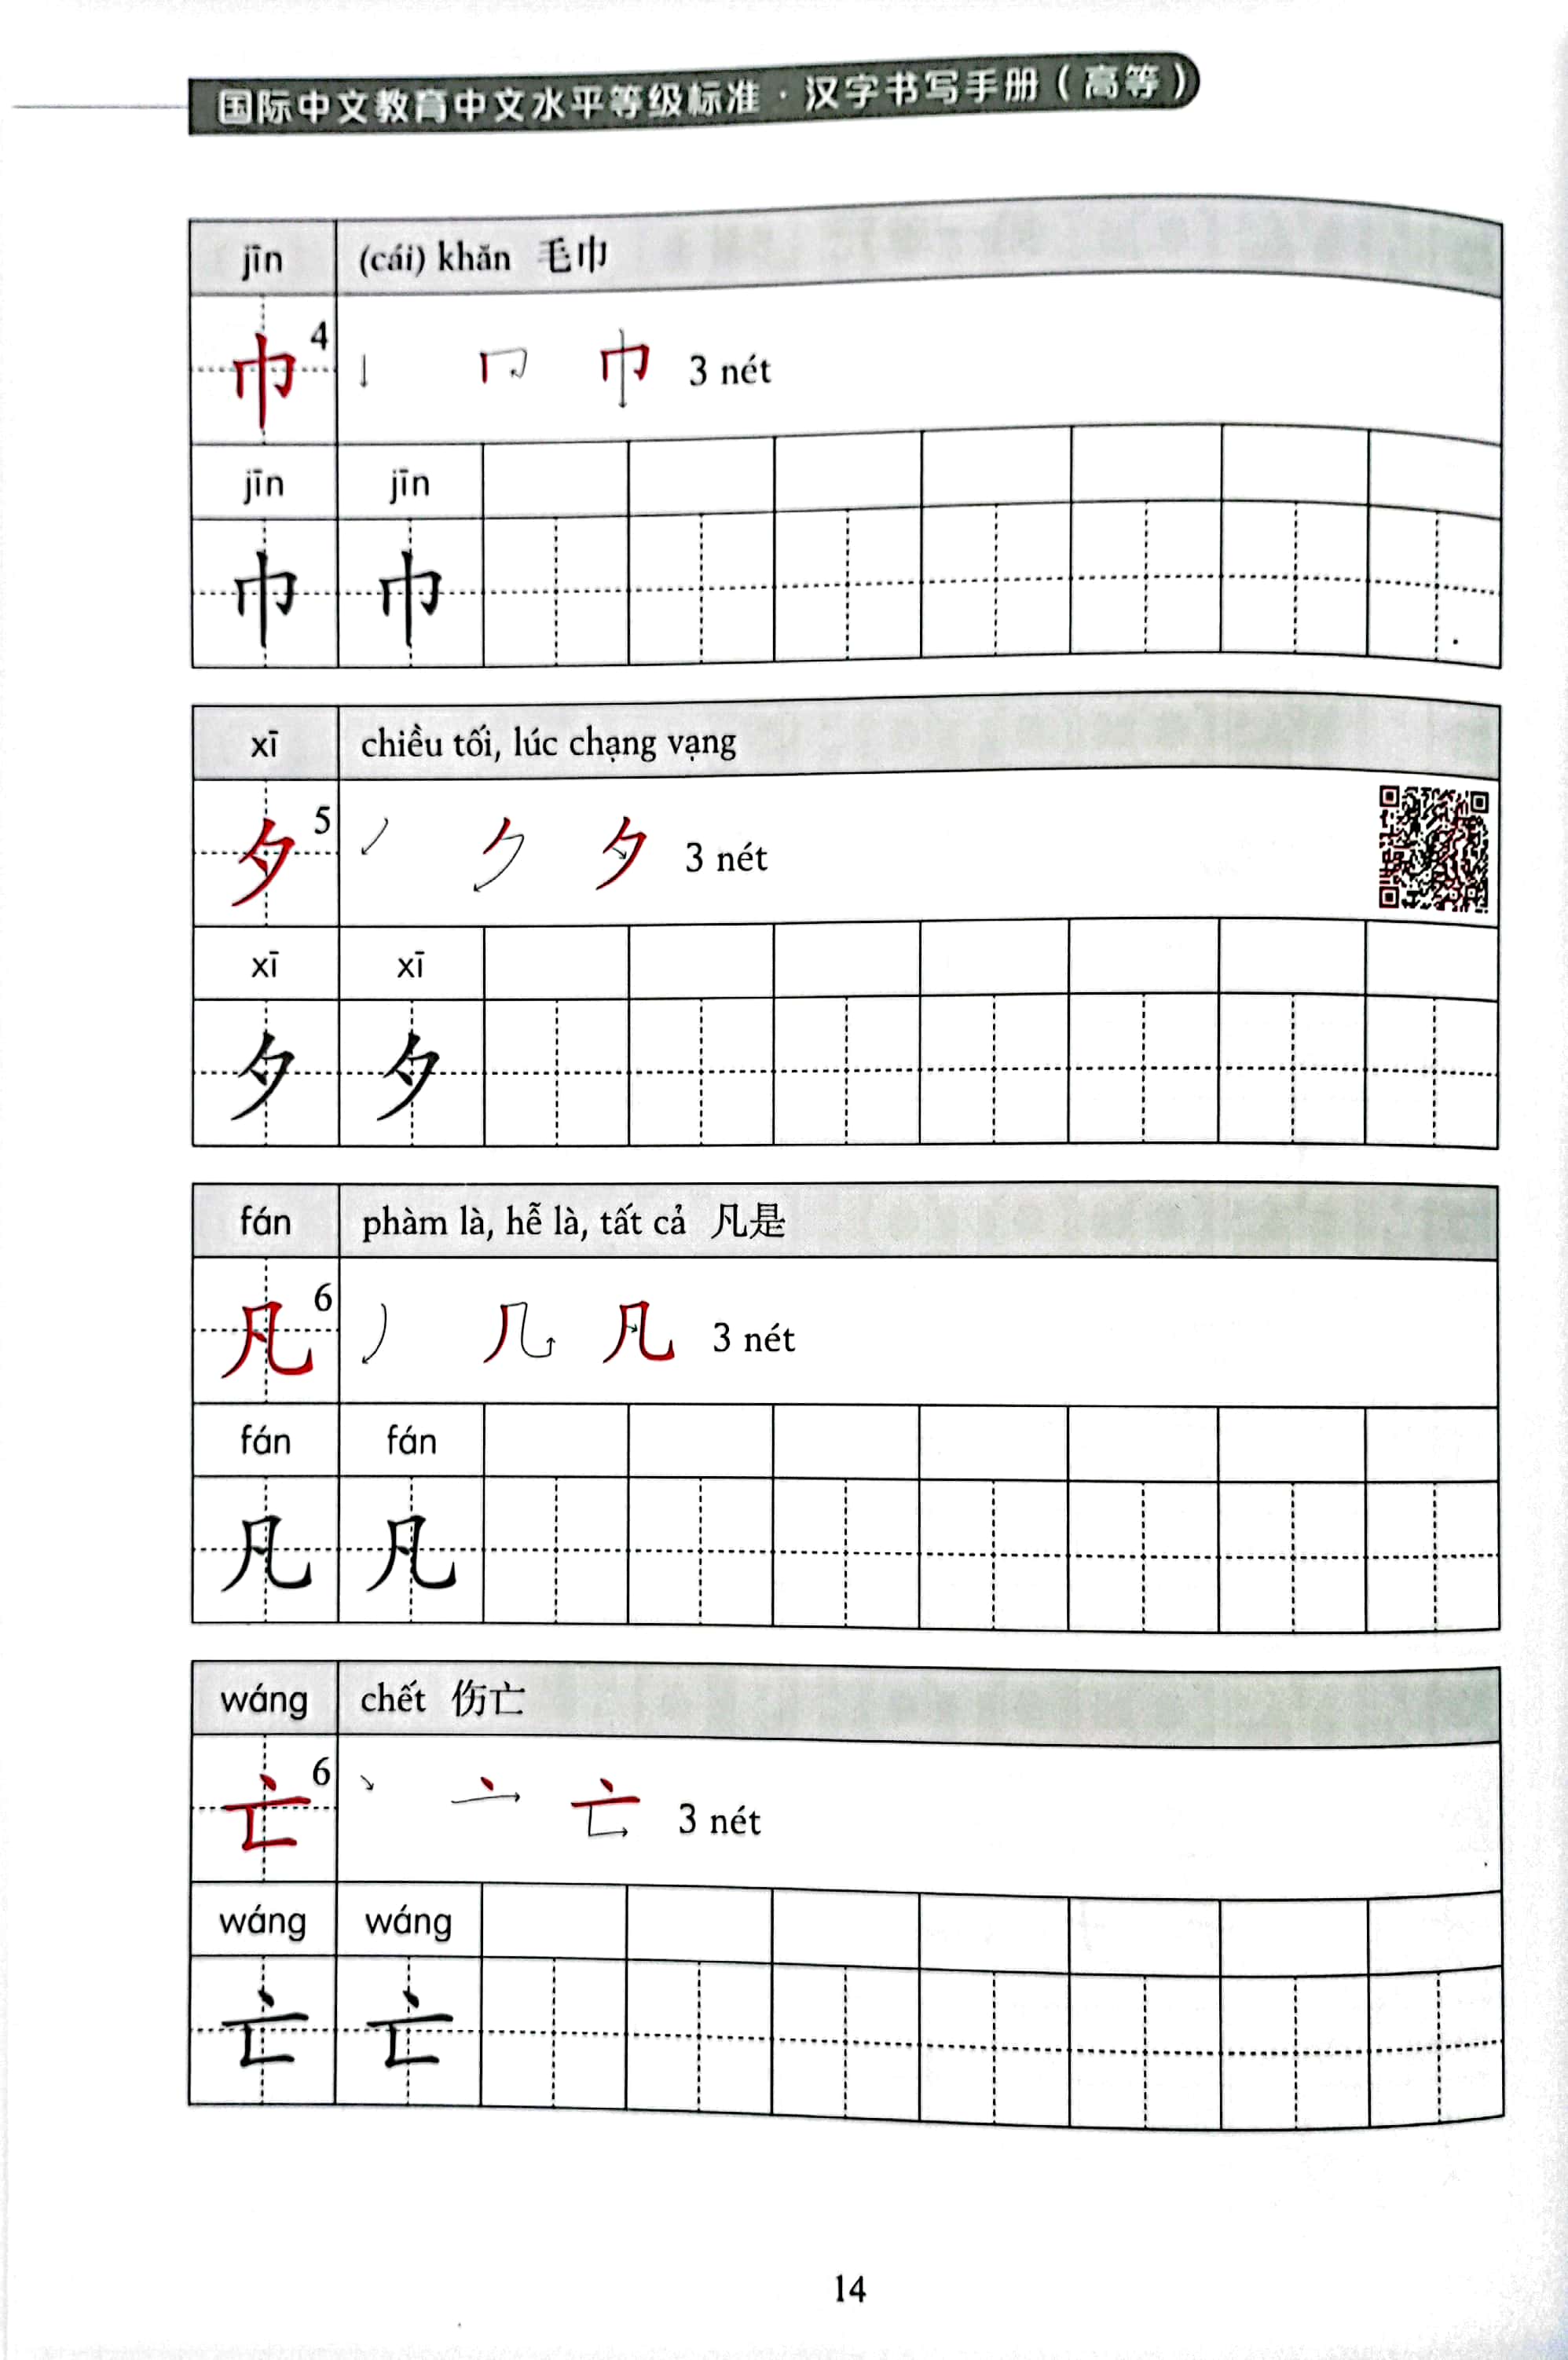 国际中文教育中文水平等级标准 · 汉字书写手册（高等）
jīn (cái) khăn 毛巾
巾 4 3 nét
jīn jīn
巾 巾
xī chiều tối, lúc chạng vạng
夕 5 3 nét
xī xī
夕 夕
fán phàm là, hễ là, tất cả 凡是
凡 6 3 nét
fán fán
凡 凡
wáng chết 伤亡
亡 6 3 nét
wáng wáng
亡 亡
14